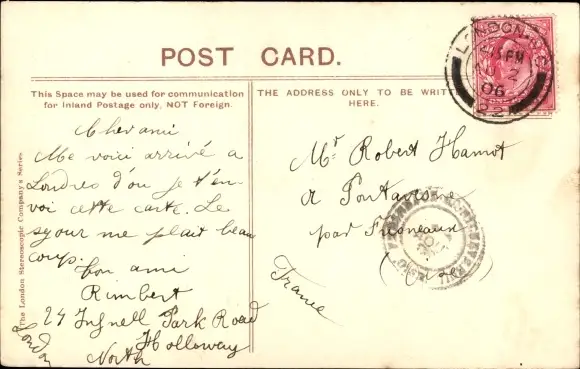 POST CARD.
This Space may be used for communication
for Inland Postage only, NOT Foreign.
THE ADDRESS ONLY TO BE WRITTEN
HERE.
Cher ami
Me voici arrivé a
Londres d'ou je t'en-
voi cette carte. Le
sejour me plait beau
coup.
ton ami
Rimbert
24 Tufnell Park Road
Holloway
North
London
Mr Robert Hamot
a Pontavesne
par Fresneaux
(Oise)
France
The London Stereoscopic Company's Series
LONDON. N
PM
2
06